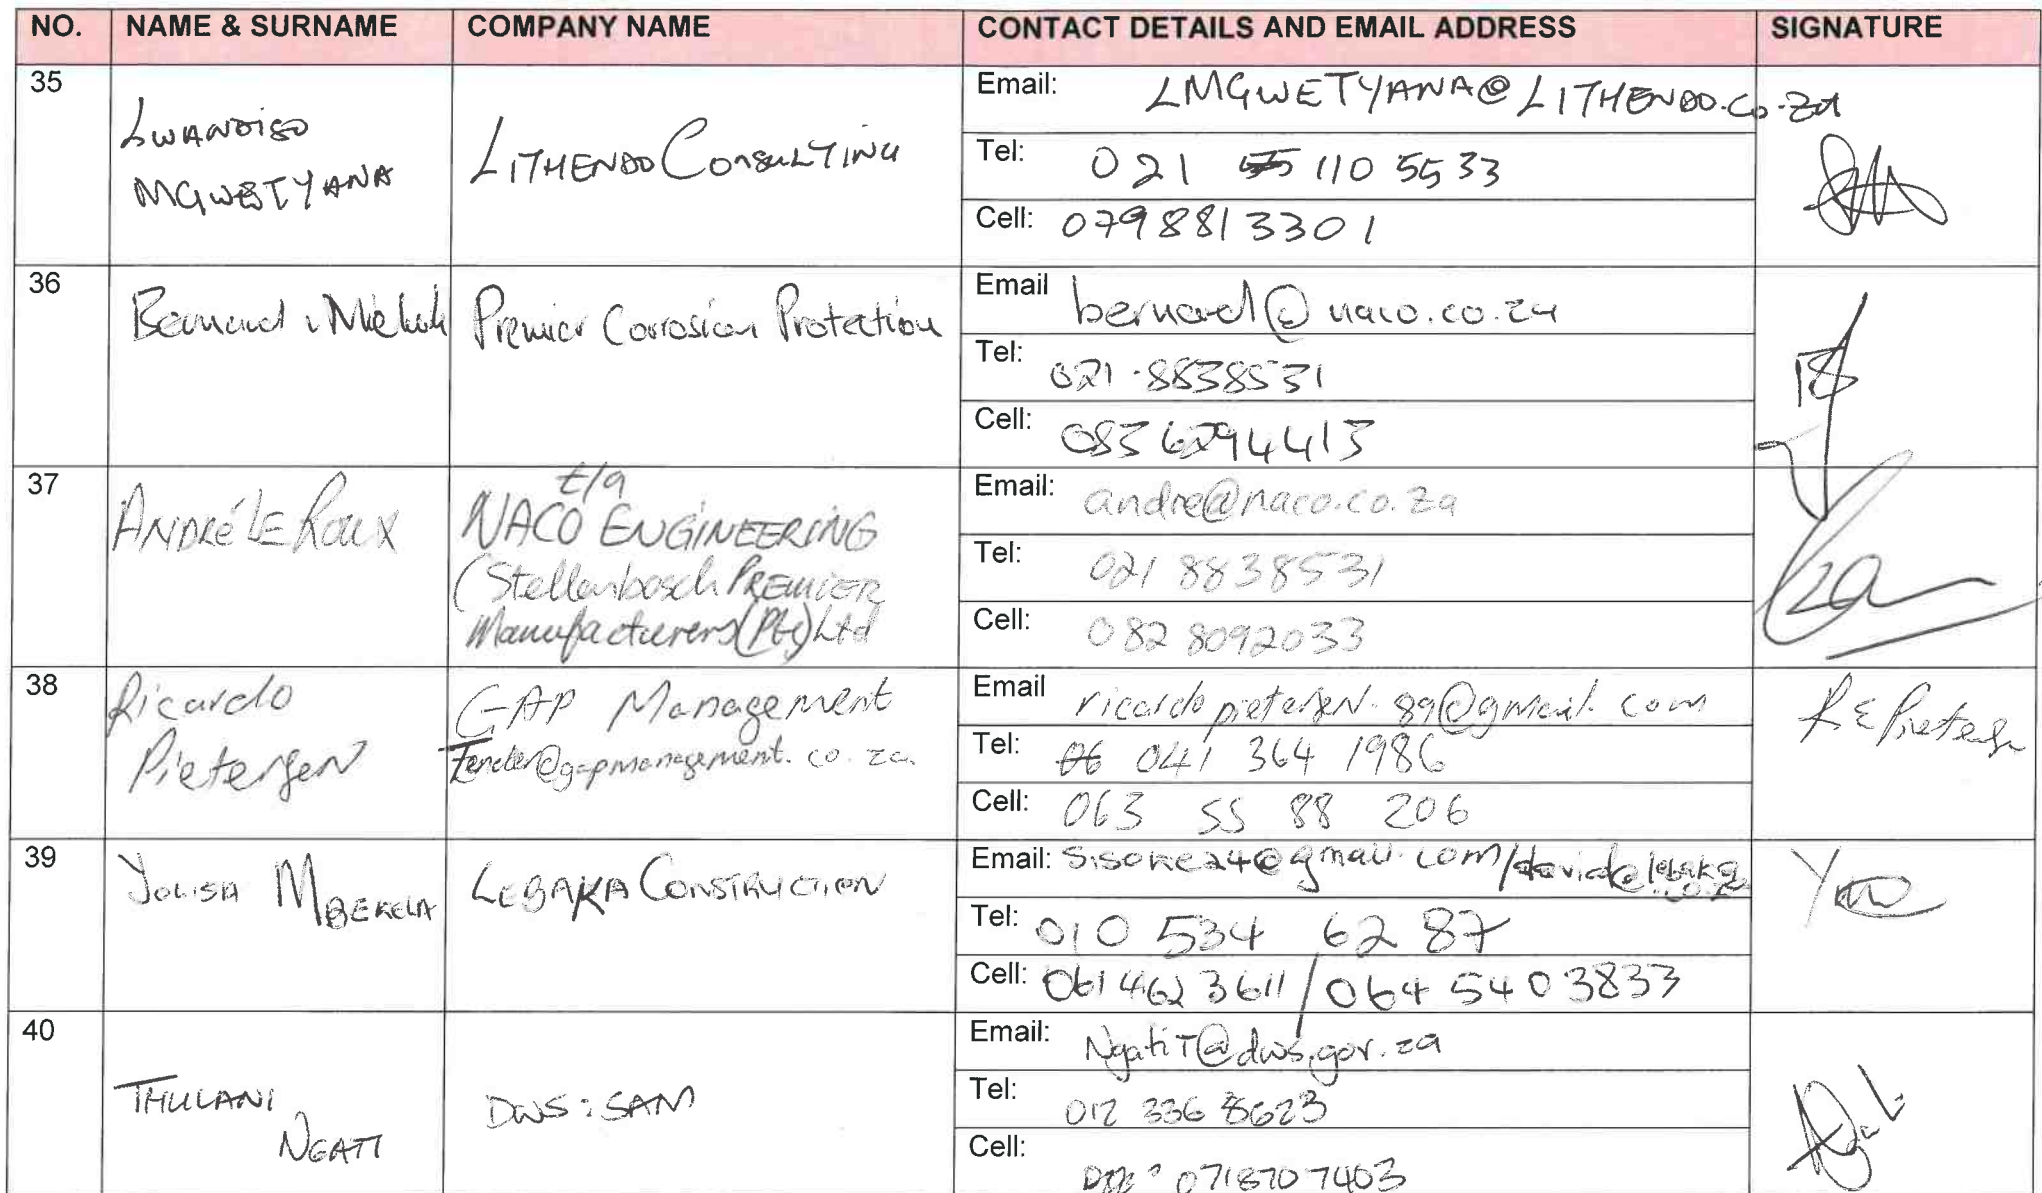 NO. NAME & SURNAME COMPANY NAME CONTACT DETAILS AND EMAIL ADDRESS SIGNATURE
35
LWANDISO
MGWETYANA
LITHENDO CONSULTING
Email: LMGWETYANA@LITHENDO.co.za
Tel: 021 110 5533
Cell: 0798813301
36
Bernard
Premier Corrosion Protection
Email bernard@naco.co.za
Tel: 021 8838531
Cell: 0836294413
37
ANDRé LE Roux
t/a
NACO ENGINEERING
(Stellenbosch PREMIER
Manufacturers (Pty) Ltd
Email: andre@naco.co.za
Tel: 021 8838531
Cell: 082 8092033
38
Ricardo
Pietersen
GAP Management
Tender@gapmanagement.co.za
Email ricardopietersen.89@gmail.com
Tel: 041 364 1986
Cell: 063 55 88 206
R E Pietersen
39
YOLISA MBEKELA
LEBAKA CONSTRUCTION
Email: Sisoke24@gmail.com/
Tel: 010 534 62 87
Cell: 061 462 3611 / 064 540 3833
40
THULANI
NGATI
DWS: SAM
Email: NgatiT@dws.gov.za
Tel: 012 336 8623
Cell: 0718707403